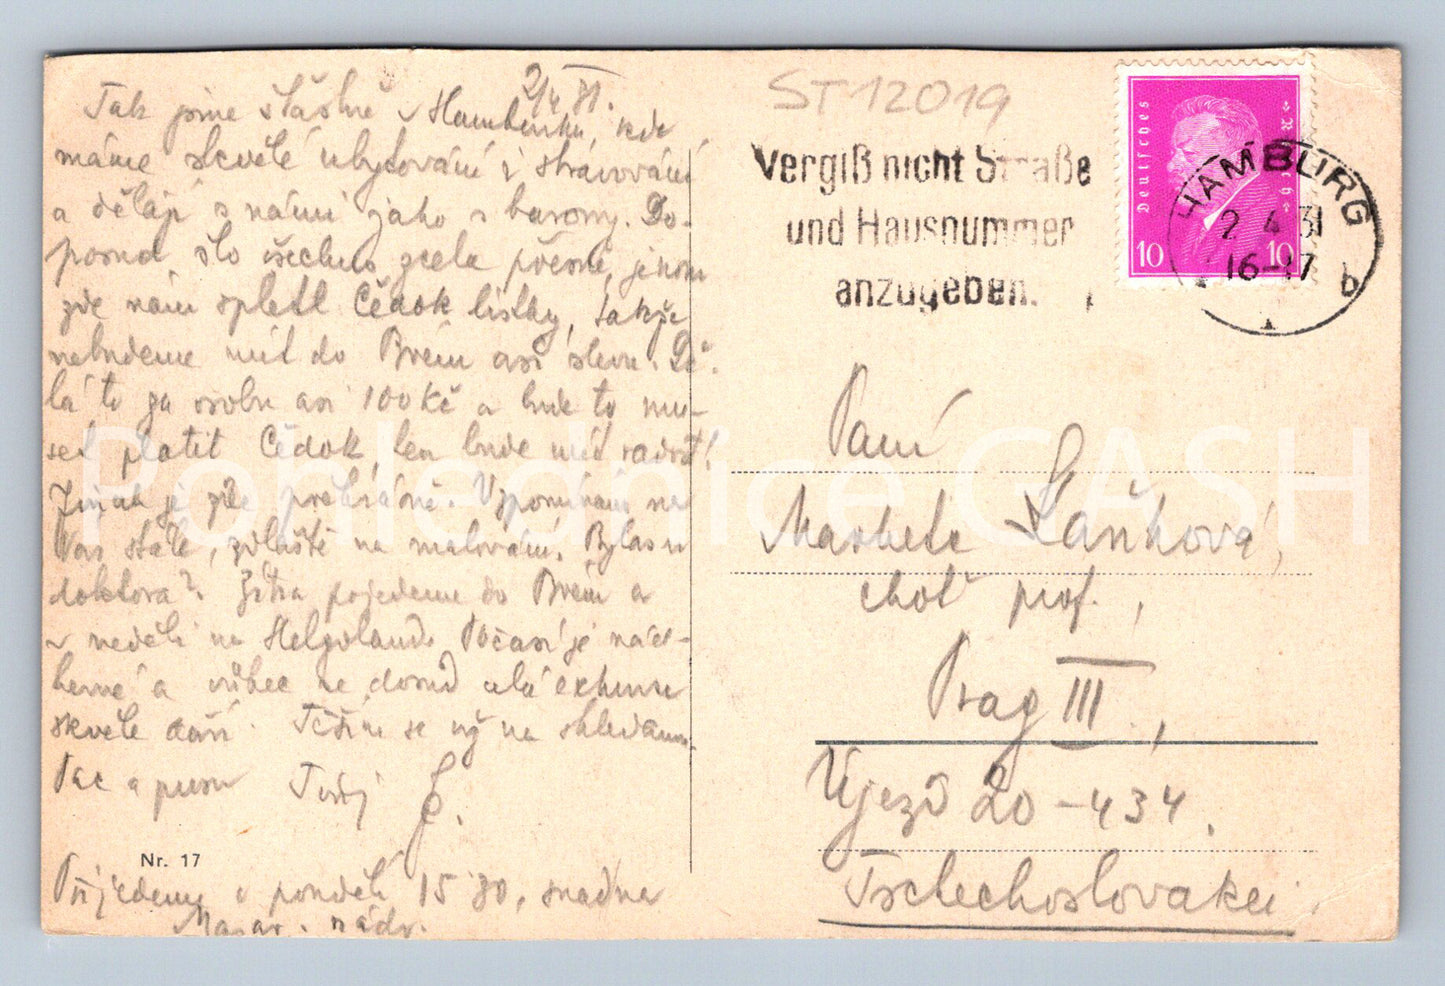 2/4 31.
Tak jsme šťastně v Hamburku, kde
máme skvělé ubytování i stravování
a dělají s námi jako s barony. Do-
posud šlo všechno zcela přesně, jenom
zde nám spletl Čedok lístky, takže
nebudeme mít do Brém asi slevu. Dě-
lá to za osobu asi 100 Kč a bude to mu-
set platit Čedok, ten bude mít radost!
Jinak je zde prekrásně. Vzpomínám na
Vás stále, zvláště na malování. Byla s u
doktora? Zítra pojedeme do Brém a
v neděli na Helgoland. Počasí je nád-
herné a vůbec se dosud celá exkurse
skvěle daří. Těším se už na shledanou.
Pac a pusu Tvůj
Nr. 17
Přijedeme v pondělí 15 30, snad na
Masar. nádr.
ST12019
Vergiß nicht Straße
und Hausnummer
anzugeben.
Deutsches Reich
10 10
HAMBURG
2 4 31
16-17
b
1
Paní
Markéta Laňková,
choť prof.,
Prag III.,
Újezd 20-434.
Tschechoslovakei
Pohlednice GASH